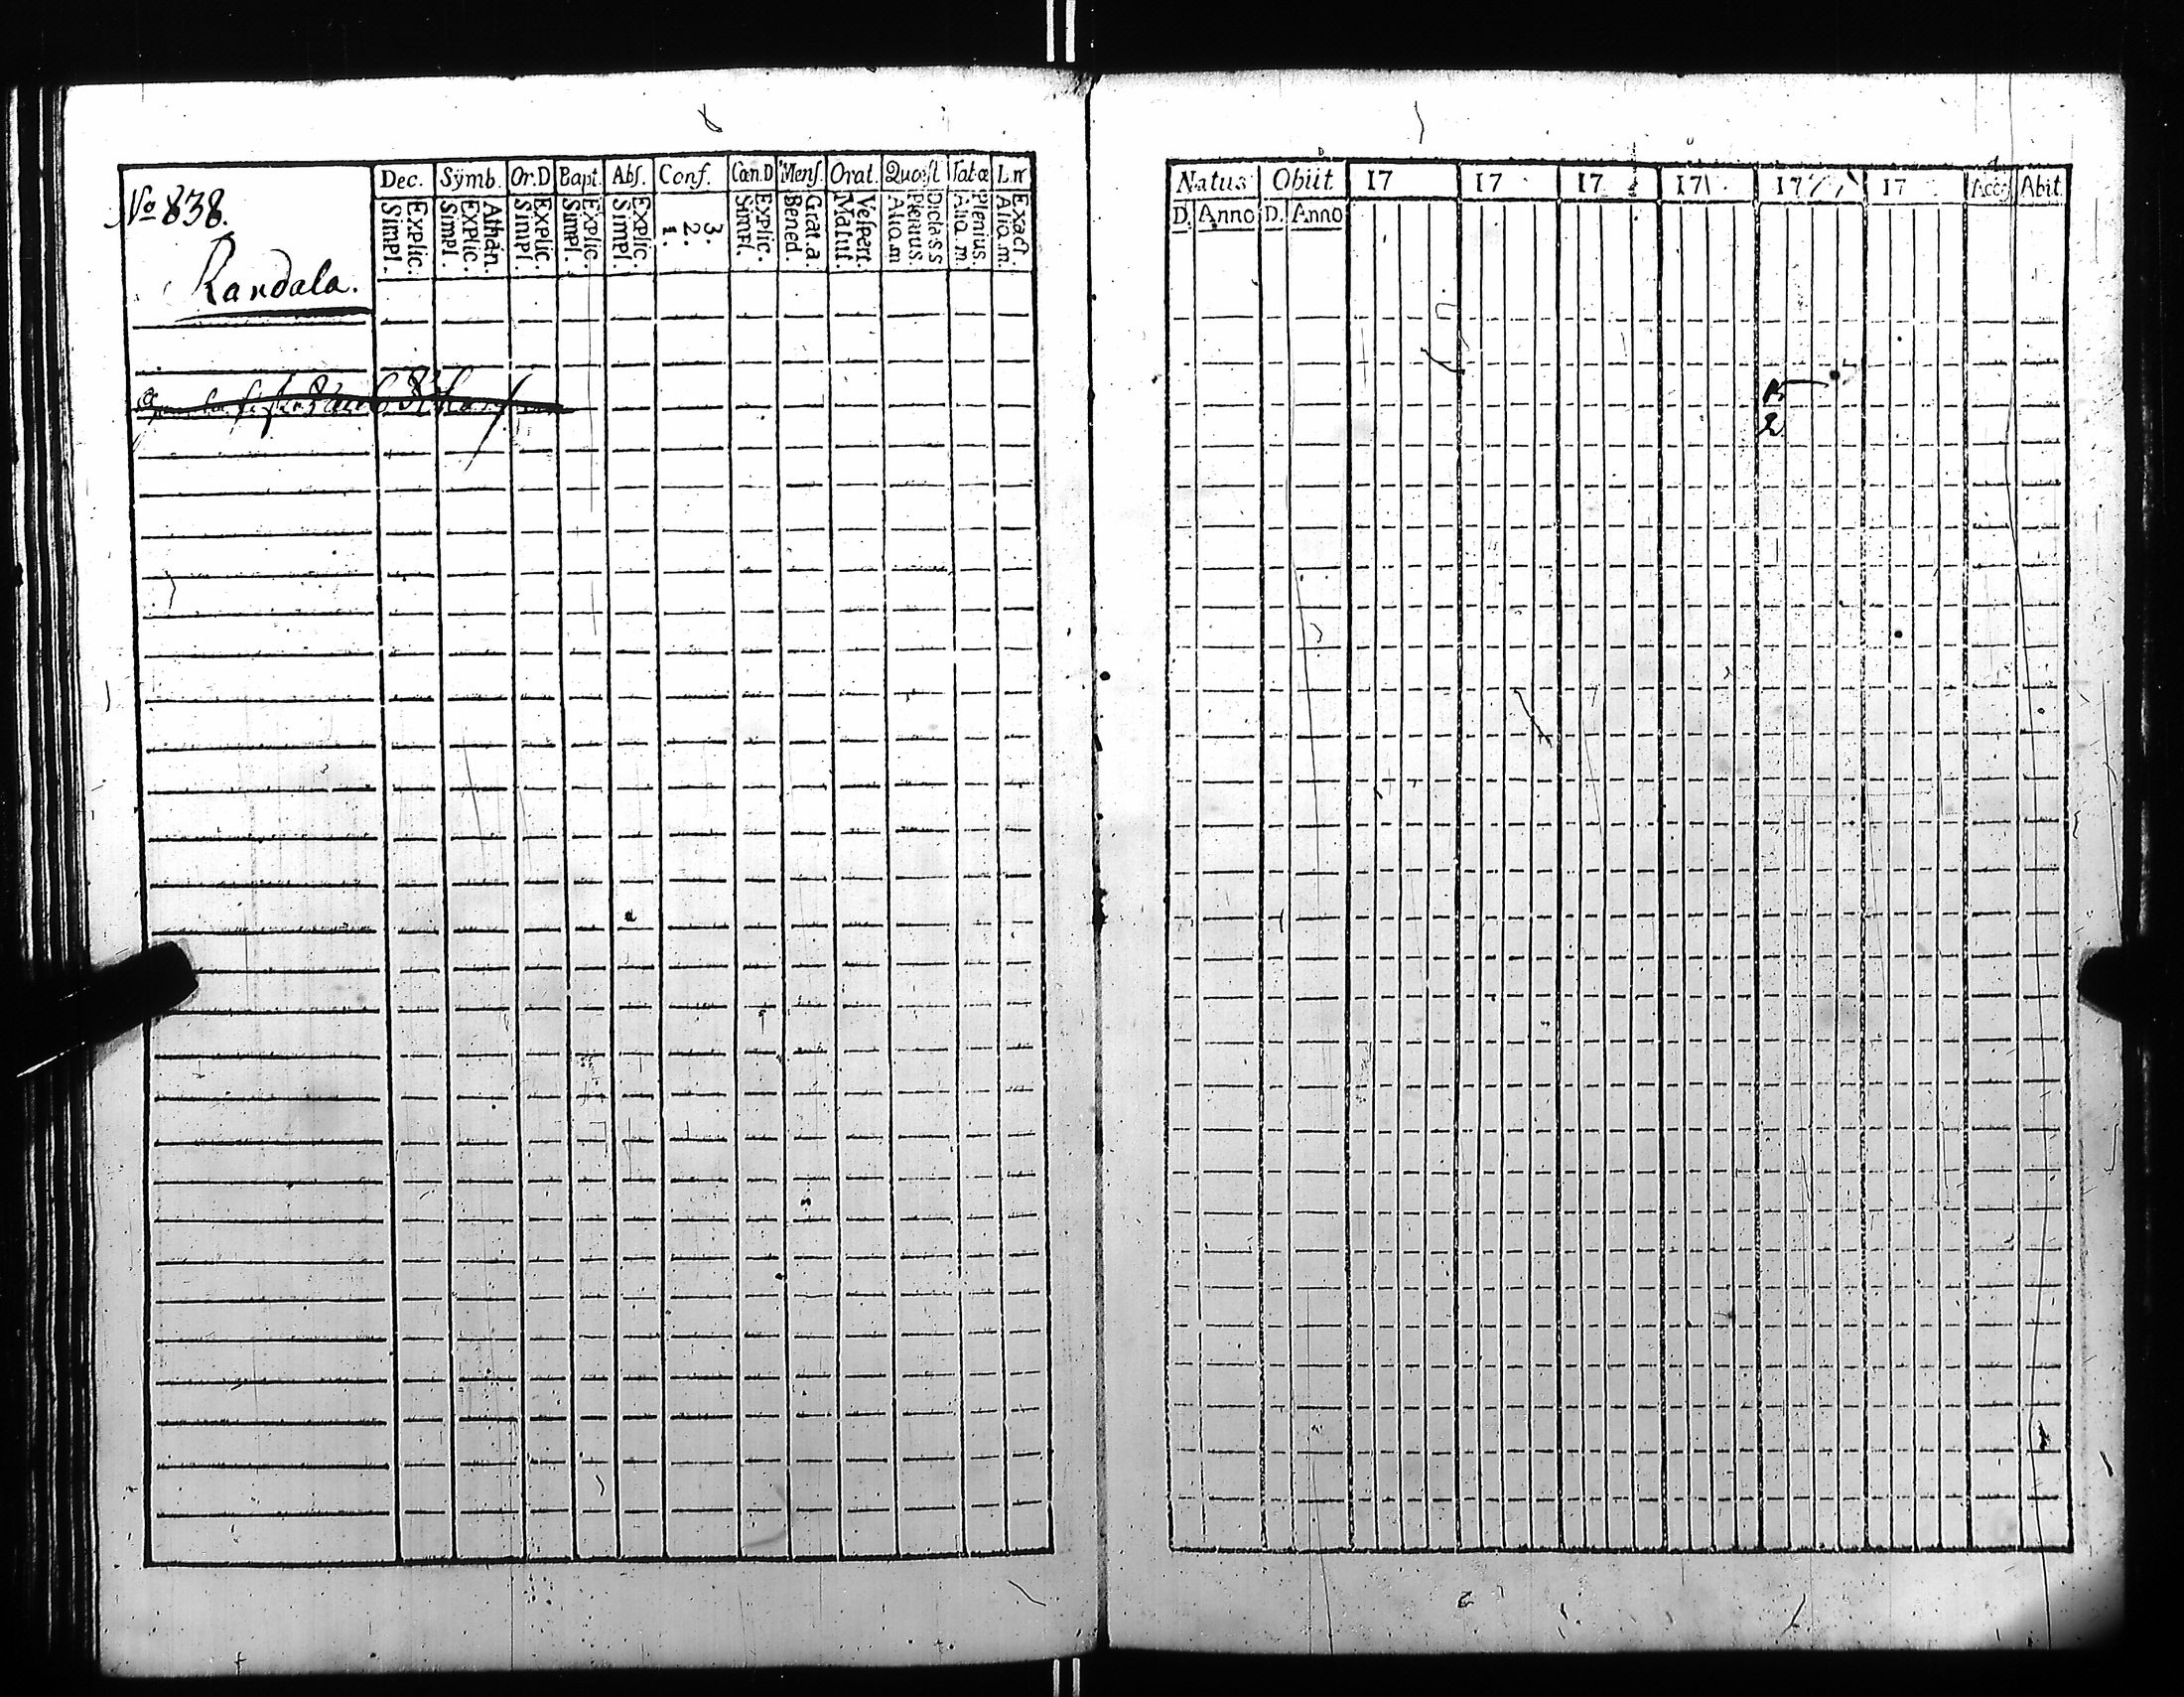 No 838.
Randala.
Dec. Symb. Or.D Bapt. Abs. Conf. Cœn.D Mens. Orat. Quæst Tabæ Ln
Simpl. Explic. Simpl. Explic. Athan. Simpl. Explic. Simpl. Explic. Simpl. Explic. 1. 2. 3. Simpl. Explic. Bened. Grat. a. Matut. Vespert. Aliq.m Plenius. Dicta s.s Aliq.m Plenius. Aliq.m. Exact.
Natus Obiit 17 17 17 17 17 17 Acc. Abit.
D. Anno D. Anno
2